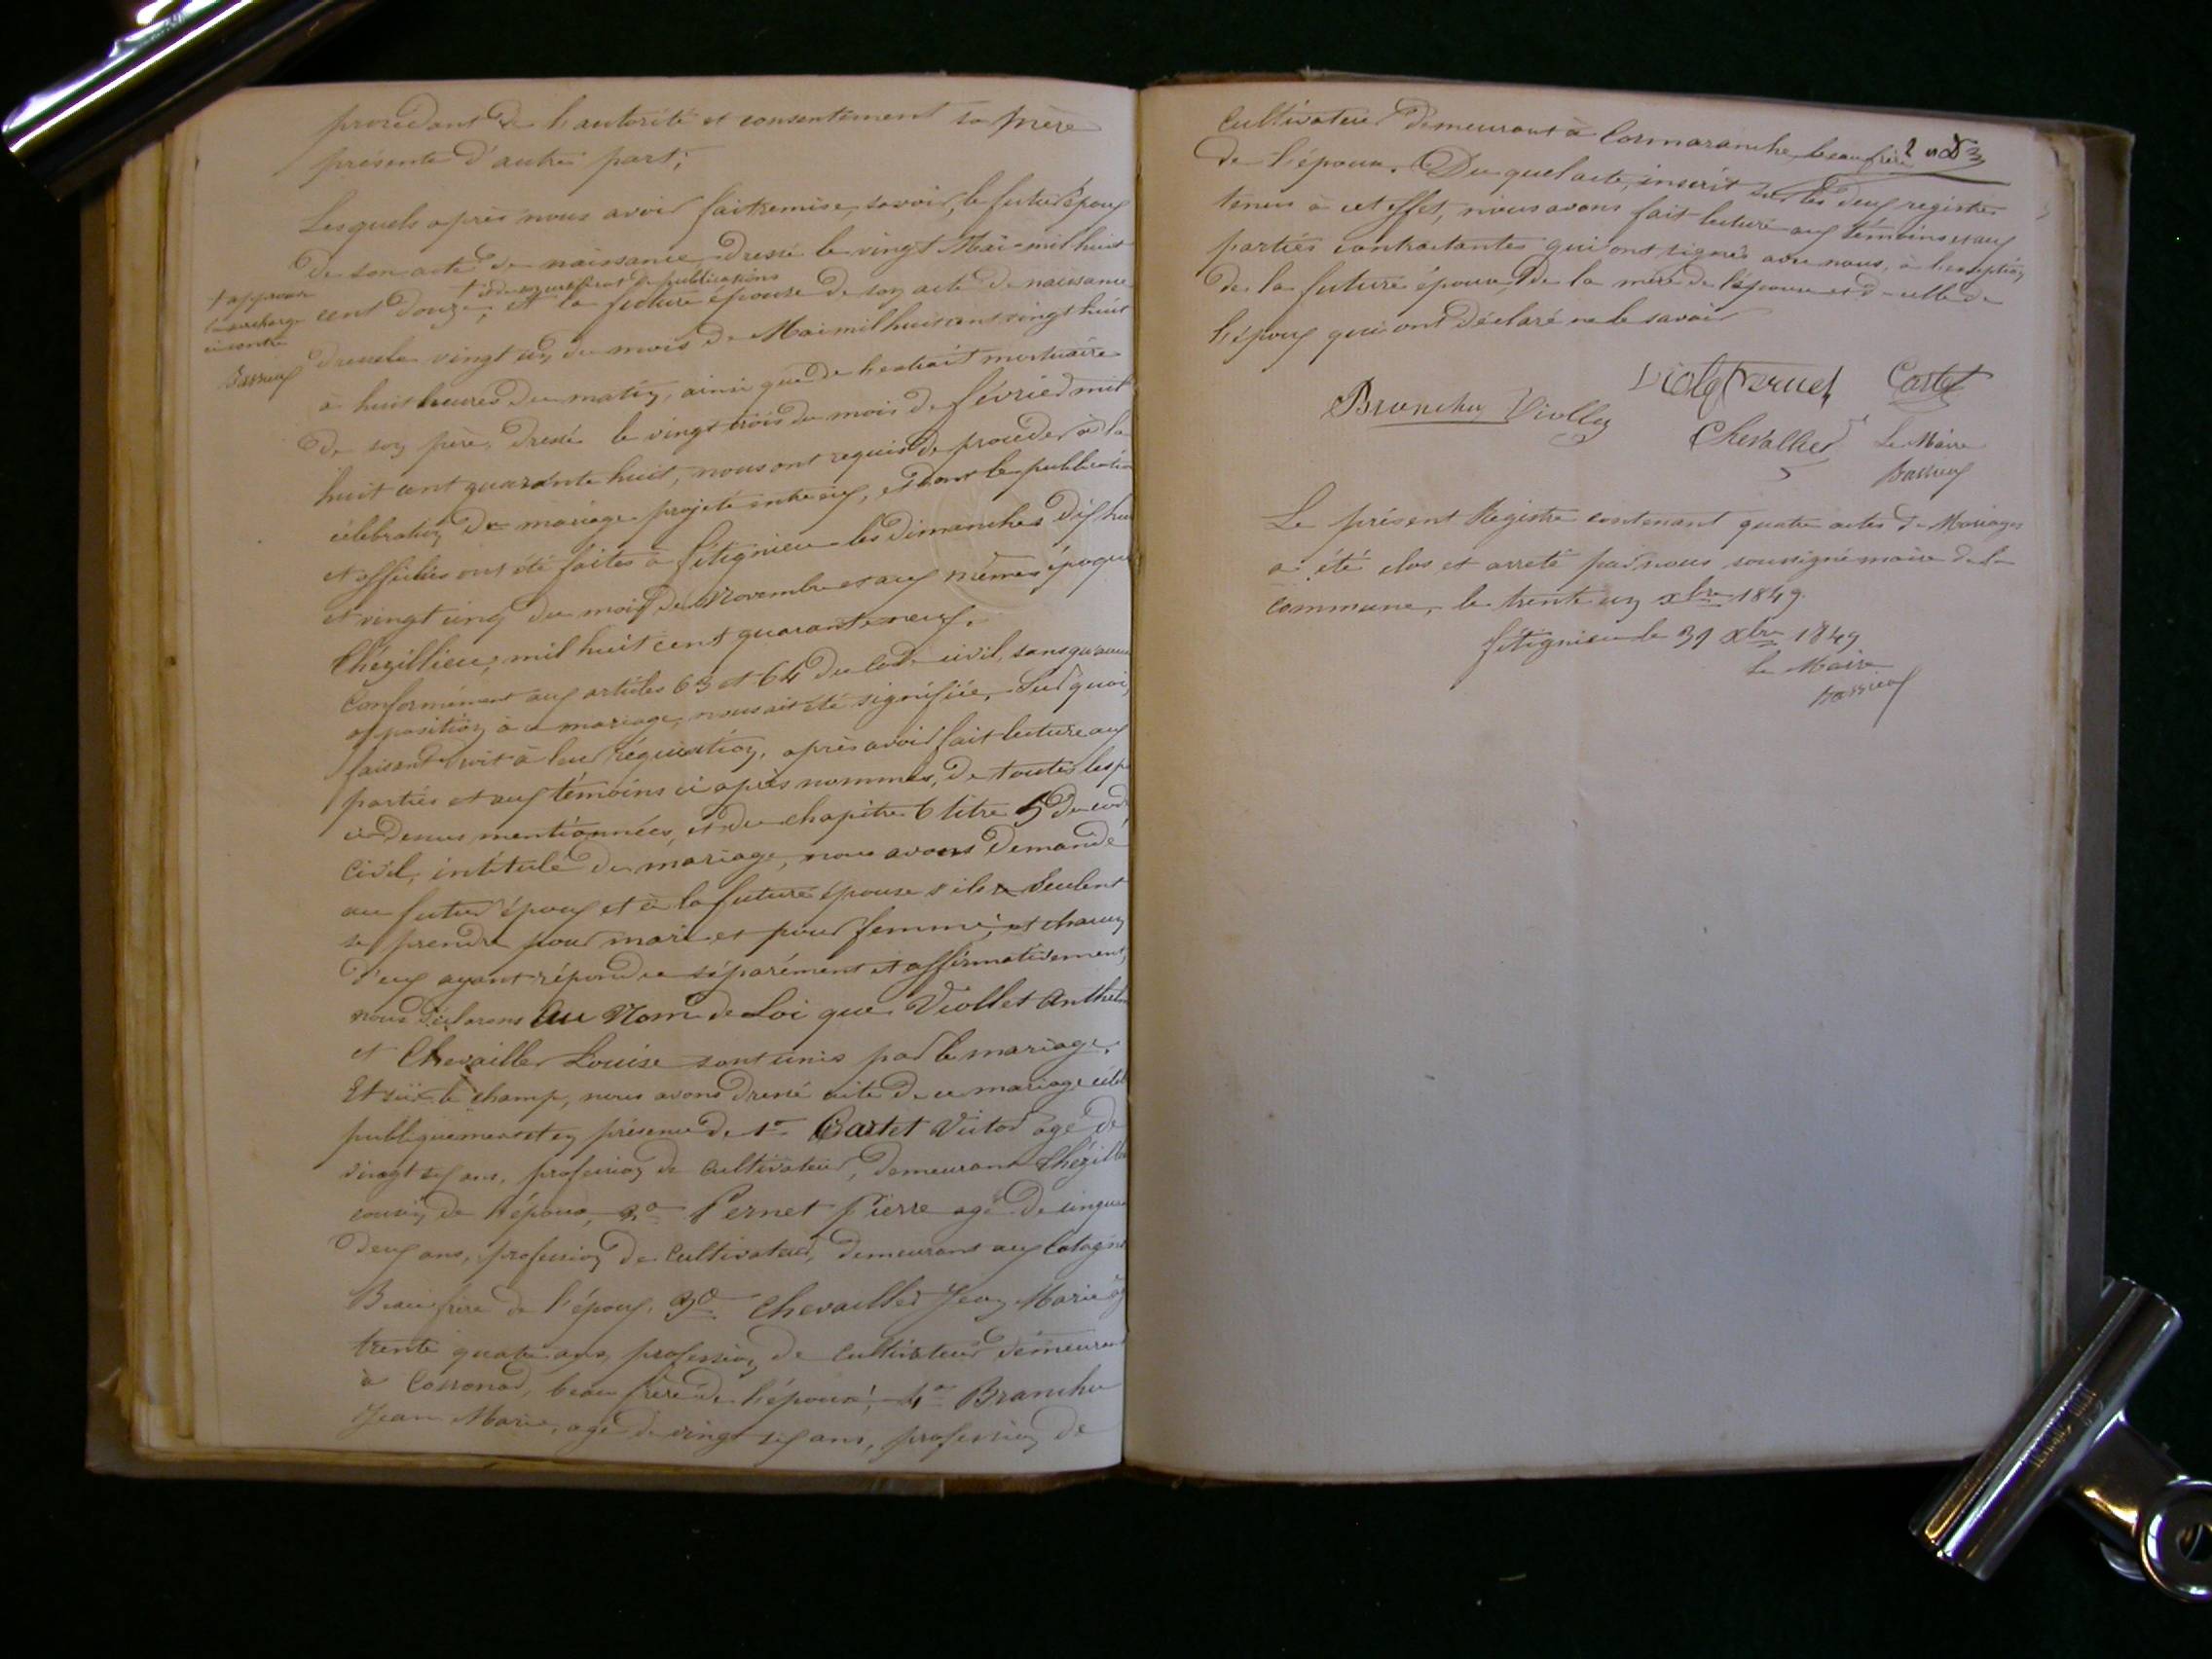 procédant de l'autorité et consentement sa mère
présente d'autre part;
Lesquels après nous avoir fait remise, savoir, le futur époux
de son acte de naissance, dressé le vingt Mai mil huit
+ et de son certificat de publications
cent douze, et la future épouse de son acte de naissance
+ approuvé
la surcharge
ci contre
Bassieux
dressé le vingt un du mois de Mai mil huit cent vingt huit
à huit heures du matin, ainsi que de l'extrait mortuaire
de son père, dressé le vingt trois du mois de février mil
huit cent quarante huit, nous ont requis de procéder à la
célébration de mariage projeté entre eux, et dont les publication
et affiches ont été faites à fitignieu les dimanches dix huit
et vingt cinq du mois de Novembre et aux mêmes époques
Chézillieu, mil huit cent quarante neuf.
Conformément aux articles 63 et 64 du Code civil, sans qu'aucune
opposition à ce mariage, nous ait été signifiée, Sur quoi,
faisant droit à leur réquisition, après avoir fait lecture aux
parties et aux témoins ci après nommés, de toutes les p
ci-dessus mentionnées, et du chapitre 6 titre 5 du code
Civil, intitulé du mariage, nous avons demandé
au futur époux et à la future épouse s'ils veulent
se prendre pour mari et pour femme, et chacun
d'eux ayant répondu séparément et affirmativement,
nous déclarons Au Nom de Loi que Viollet Anthelm
et Chevailler Louise sont unis par le mariage.
Et sur le champ, nous avons dressé acte de ce mariage célébré
publiquement et en présence de 1° Castet Victor agé de
vingt six ans, profession de cultivateur, demeurant Chézillieu
cousin de l'époux, 2° Pernet Pierre agé de cinquante
deux ans, profession de cultivateur, demeurant aux Catagnes
Beau frère de l'époux, 3° Chevailler Jean Marie agé
trente quatre ans, profession de cultivateur demeurant
à Cossonod, beau frère de l'époux, 4° Branche
Jean Marie, agé de vingt six ans, profession de
Cultivateur demeurant à Cormaranche beau frère
de l'époux. Du quel acte, inscrit sur les deux registres
tenus à cet effet, nous avons fait lecture aux témoins et aux
parties contractantes qui ont signés avec nous, à l'exception
de la future épouse, de la mère de l'épouse et de celle de
l'époux qui ont déclaré ne le savoir
Viollet Pernet Castet
Branche Viollet
Chevallier Le Maire
Bassieux
Le présent Registre contenant quatre actes de Mariages
a été clos et arreté par nous soussigné maire de la
commune, le trente un xbre 1849
fitignieu le 31 xbre 1849
Le Maire
Bassieux